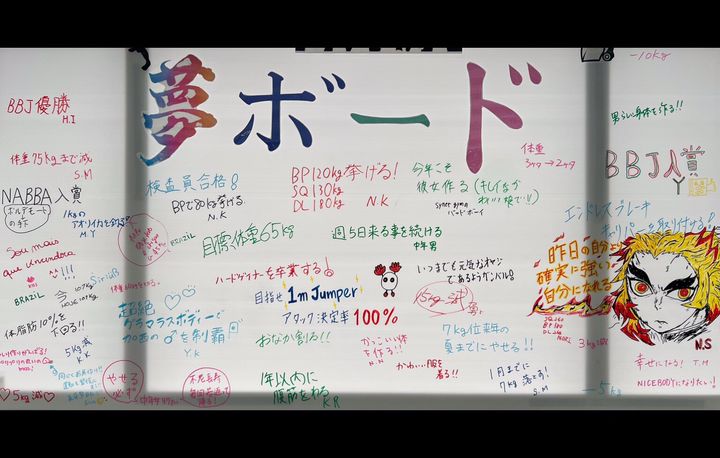 夢ボード
BBJ優勝
H.I
体重75kgまで減
S.M
NABBA入賞
1kgの
アオリイカを釣る!!
M.Y
Sou mais
que vencedora
BRAZIL
体脂肪10%を
下回る!!
5kg減
K.K
5kg減
検査員合格
BPで80kg挙げる
N.K
BRAZIL
目標、体重65kg
超絶
グラマラスボディーで
を制覇
Y.K
やせる
必ず
BP120kg挙げる!
SQ130kg
DL180kg
N.K
週5日来る事を続ける
中年男
ハードゲイナーを卒業する
目指せ 1m Jumper
アタック決定率 100%
おなか割る!!
1年以内に
腹筋をわる
K R
かっこいい体
を作る!!
N.N
今年こそ
彼女作る
いつまでも元気なオヤジ
であるようガンバル!
7kg位来年の
夏までにやせる!!
着る!!
1月までに
7kg落とす!
S.M
体重
−10kg
男らしい身体を作る!!
BBJ入賞
Y
エンドレスブレーキ
キャリパーを取り付ける
昨日の自分より
確実に強い
自分になれる
SQ 260
BP 180
N.S
幸せになる! T.M
NICEBODYになりたい!
−5kg